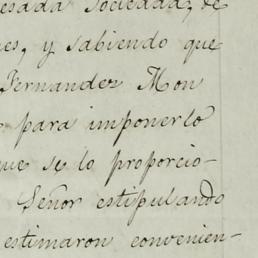 esada Sociedad, de
es, y sabiendo que
Fernandez Mon
para imponerlo
que se lo proporcio-
Señor estipulando
estimaron convenien-